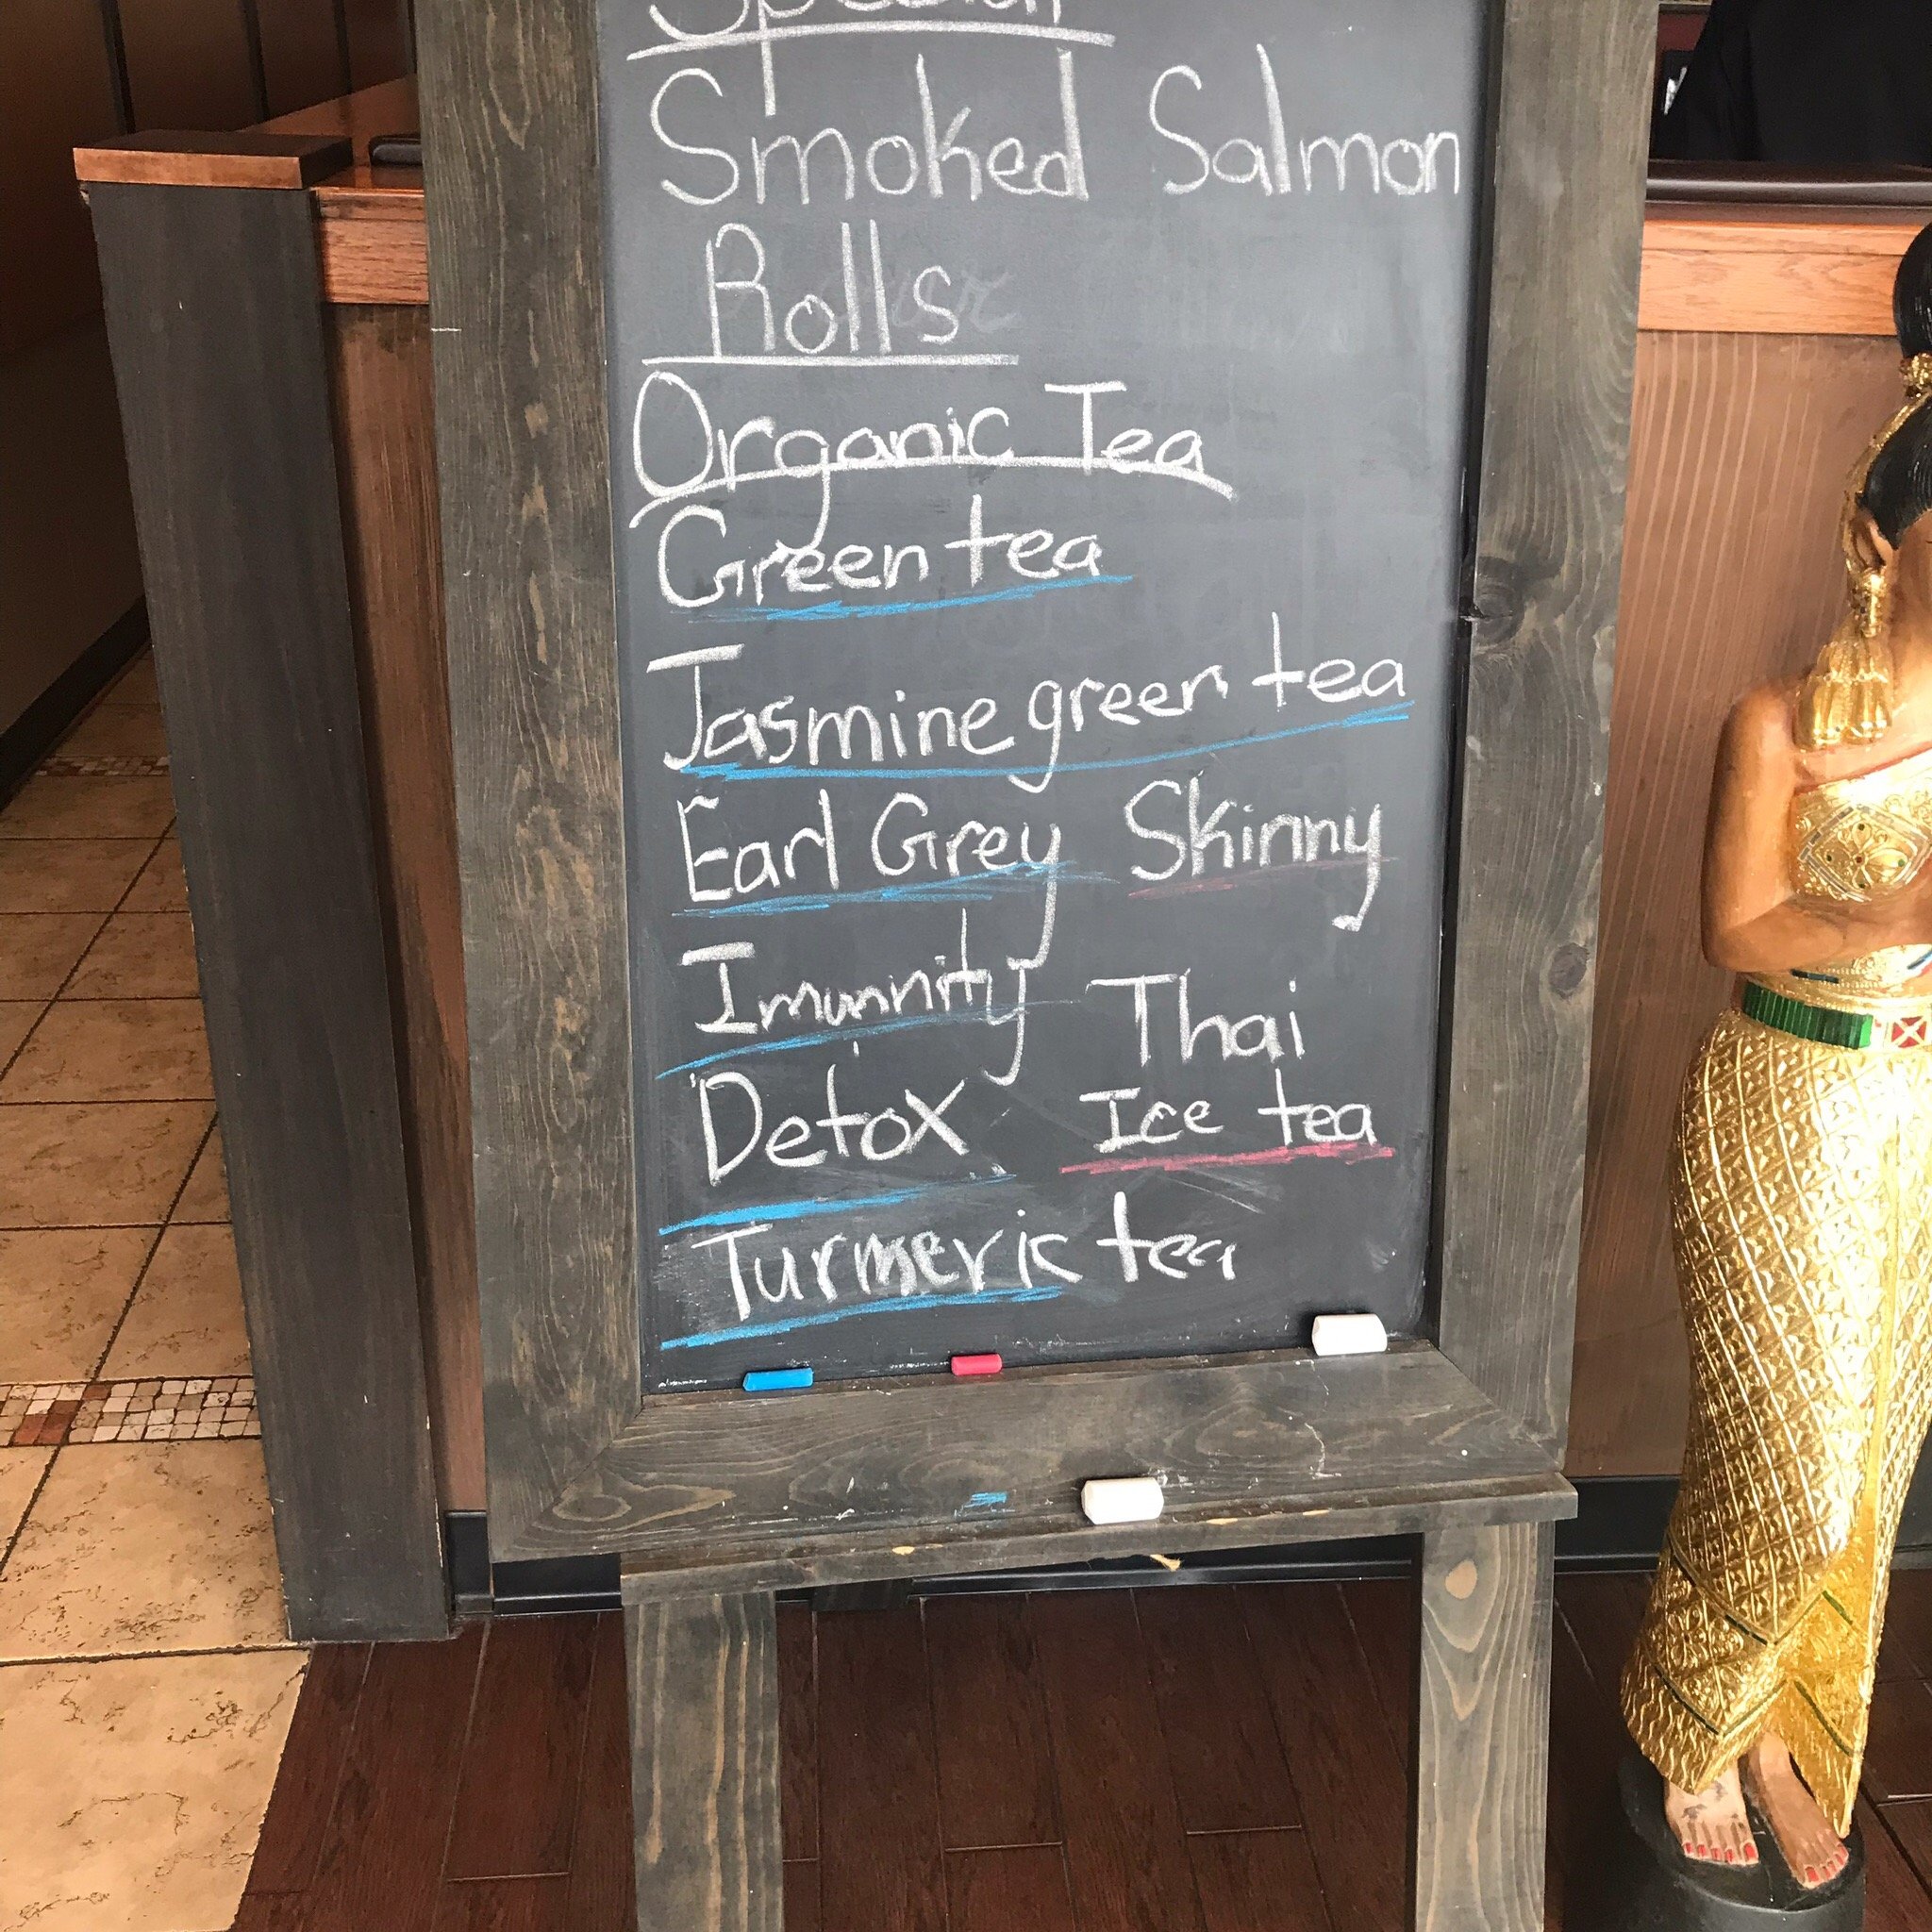 Special
Smoked Salmon
Rolls
Organic Tea
Green tea
Jasmine green tea
Earl Grey Skinny
Imunnity
Thai
Detox
Ice tea
Turmeric tea